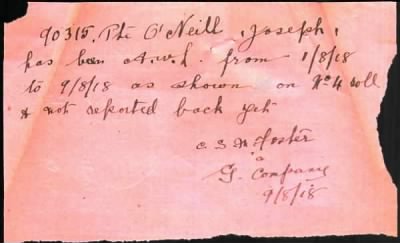 90315. Pte O'Neill, Joseph,
has been A.W.L. from 1/8/18
to 9/8/18 as shown on No 4 roll
& not reported back yet
C.S.M. Foster
G. Company
9/8/18